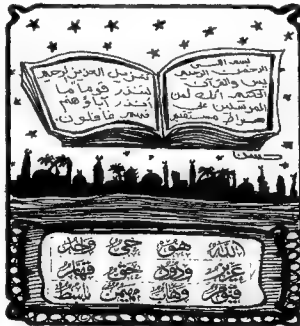 بسم الله
الرحمن الرحيم
يس والقرآن
الحكيم انك لمن
المرسلين على
صراط مستقيم
تنزيل العزيز الرحيم
لتنذر قوما ما
انذر آباؤهم
فهم غافلون
يس
الله حي واحد
عزيز ودود قهار
قيوم وهاب مهيمن باسط